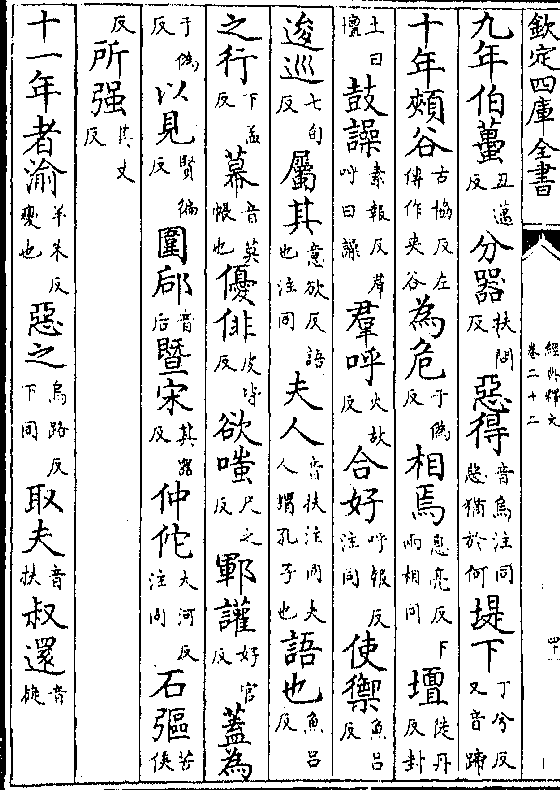 欽定四庫全書
經典釋文
卷二十二
九年伯蠆丑邁反分器扶問反惡得音烏注同惡猶於何堤下丁兮反又音蹄
十年頰谷古協反左傳作夾谷為危于偽反相焉息亮反下兩相同壇徒丹反封
土曰壇鼓譟素報反羣呼曰譟羣呼火故反合好呼報反注同使禦魚呂反
逡巡七旬反屬其意欲反語也注同夫人音扶注同夫人謂孔子也語也魚呂反
之行下孟反幕音莫帳也優俳皮皆反欲嗤尺之反鄆讙好官反蓋為
于偽反以見賢徧反圍郈音后暨宋其器反仲佗大河反注同石彄苦侯
反所强其丈反
十一年者渝羊朱反變也惡之烏路反下同取夫音扶叔還音旋